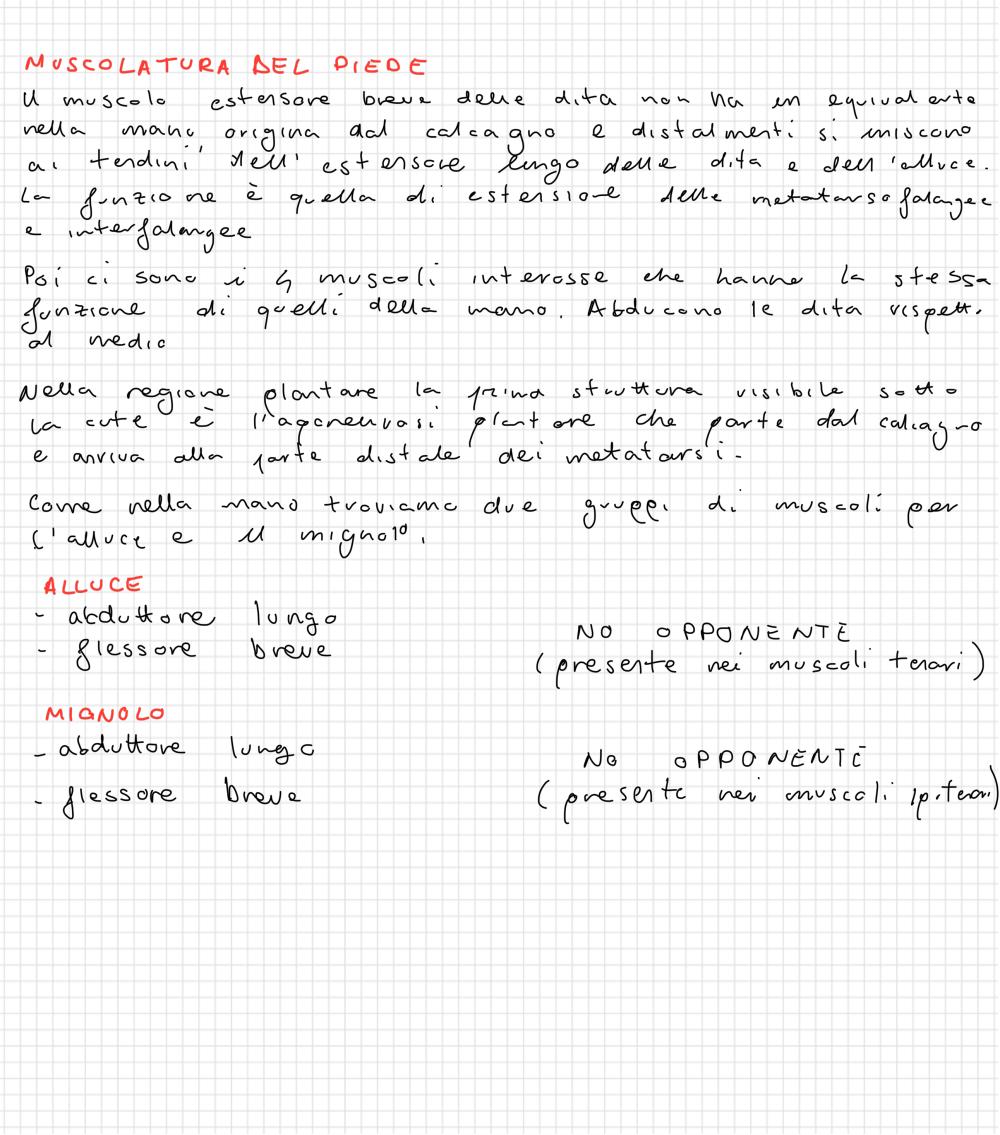 MUSCOLATURA DEL PIEDE
Il muscolo estensore breve delle dita non ha un equivalente
nella mano origina dal calcagno e distalmenti si uniscono
ai tendini dell'estensore lungo delle dita e dell'alluce.
La funzione è quella di estensione delle metatarsofalangee
e interfalangee
Poi ci sono i 4 muscoli interosse che hanno la stessa
funzione di quelli della mano. Abducono le dita rispett.
al medio
Nella regione plantare la prima struttura visibile sotto
la cute è l'aponeurosi plantare che parte dal calcagno
e arriva alla parte distale dei metatarsi.
Come nella mano troviamo due gruppi di muscoli per
l'alluce e il mignolo.
ALLUCE
- abduttore lungo
- flessore breve
NO OPPONENTE
(presente nei muscoli tenari)
MIGNOLO
- abduttore lungo
- flessore breve
NO OPPONENTE
(presente nei muscoli ipitenari)